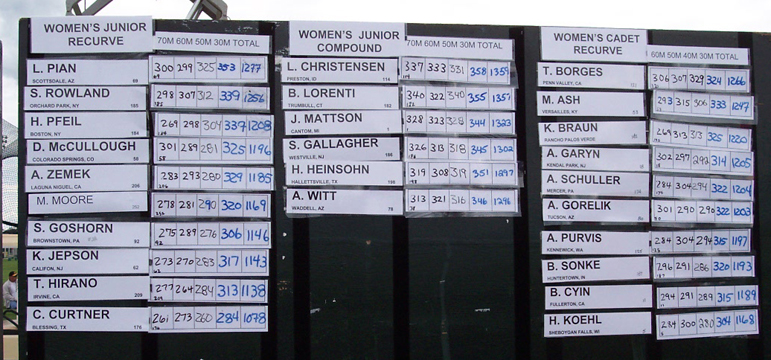 WOMEN'S JUNIOR
RECURVE
70M 60M 50M 30M TOTAL
L. PIAN 300 299 325 353 1277
SCOTTSDALE, AZ
S. ROWLAND 298 307 312 339 1256
ORCHARD PARK, NY
H. PFEIL 269 298 304 337 1208
BOSTON, NY
D. McCULLOUGH 301 289 281 325 1196
COLORADO SPRINGS, CO
A. ZEMEK 283 293 280 329 1185
LAGUNA NIGUEL, CA
M. MOORE 278 281 290 320 1169
S. GOSHORN 275 289 276 306 1146
BROWNSTOWN, PA 92
K. JEPSON 273 270 283 317 1143
CALIFON, NJ 62
T. HIRANO 277 264 284 313 1138
IRVINE, CA 209
C. CURTNER 261 273 260 284 1078
BLESSING, TX 176
WOMEN'S JUNIOR
COMPOUND
70M 60M 50M 30M TOTAL
L. CHRISTENSEN 337 333 331 358 1359
PRESTON, ID 114
B. LORENTI 340 322 340 355 1357
TRUMBULL, CT
J. MATTSON 328 323 328 344 1323
CANTOM, MI
S. GALLAGHER 326 313 318 345 1302
WESTVILLE, NJ
H. HEINSOHN 319 308 319 351 1297
HALLETTSVILLE, TX
A. WITT 313 321 316 346 1296
WADDELL, AZ 78
WOMEN'S CADET
RECURVE
60M 50M 40M 30M TOTAL
T. BORGES 306 307 329 324 1266
PENN VALLEY, CA
M. ASH 293 315 306 333 1247
VERSAILLES, KY
K. BRAUN 269 313 313 325 1220
RANCHO PALOS VERDE
A. GARYN 302 297 292 314 1205
KENDAL PARK, NJ
A. SCHULLER 284 304 294 322 1204
MERCER, PA
A. GORELIK 301 290 290 322 1203
TUCSON, AZ
A. PURVIS 284 304 294 315 1197
KENNEWICK, WA
B. SONKE 296 291 286 320 1193
HUNTERTOWN, IN
B. CYIN 294 291 289 315 1189
FULLERTON, CA
H. KOEHL 284 300 280 304 1168
SHEBOYGAN FALLS, WI